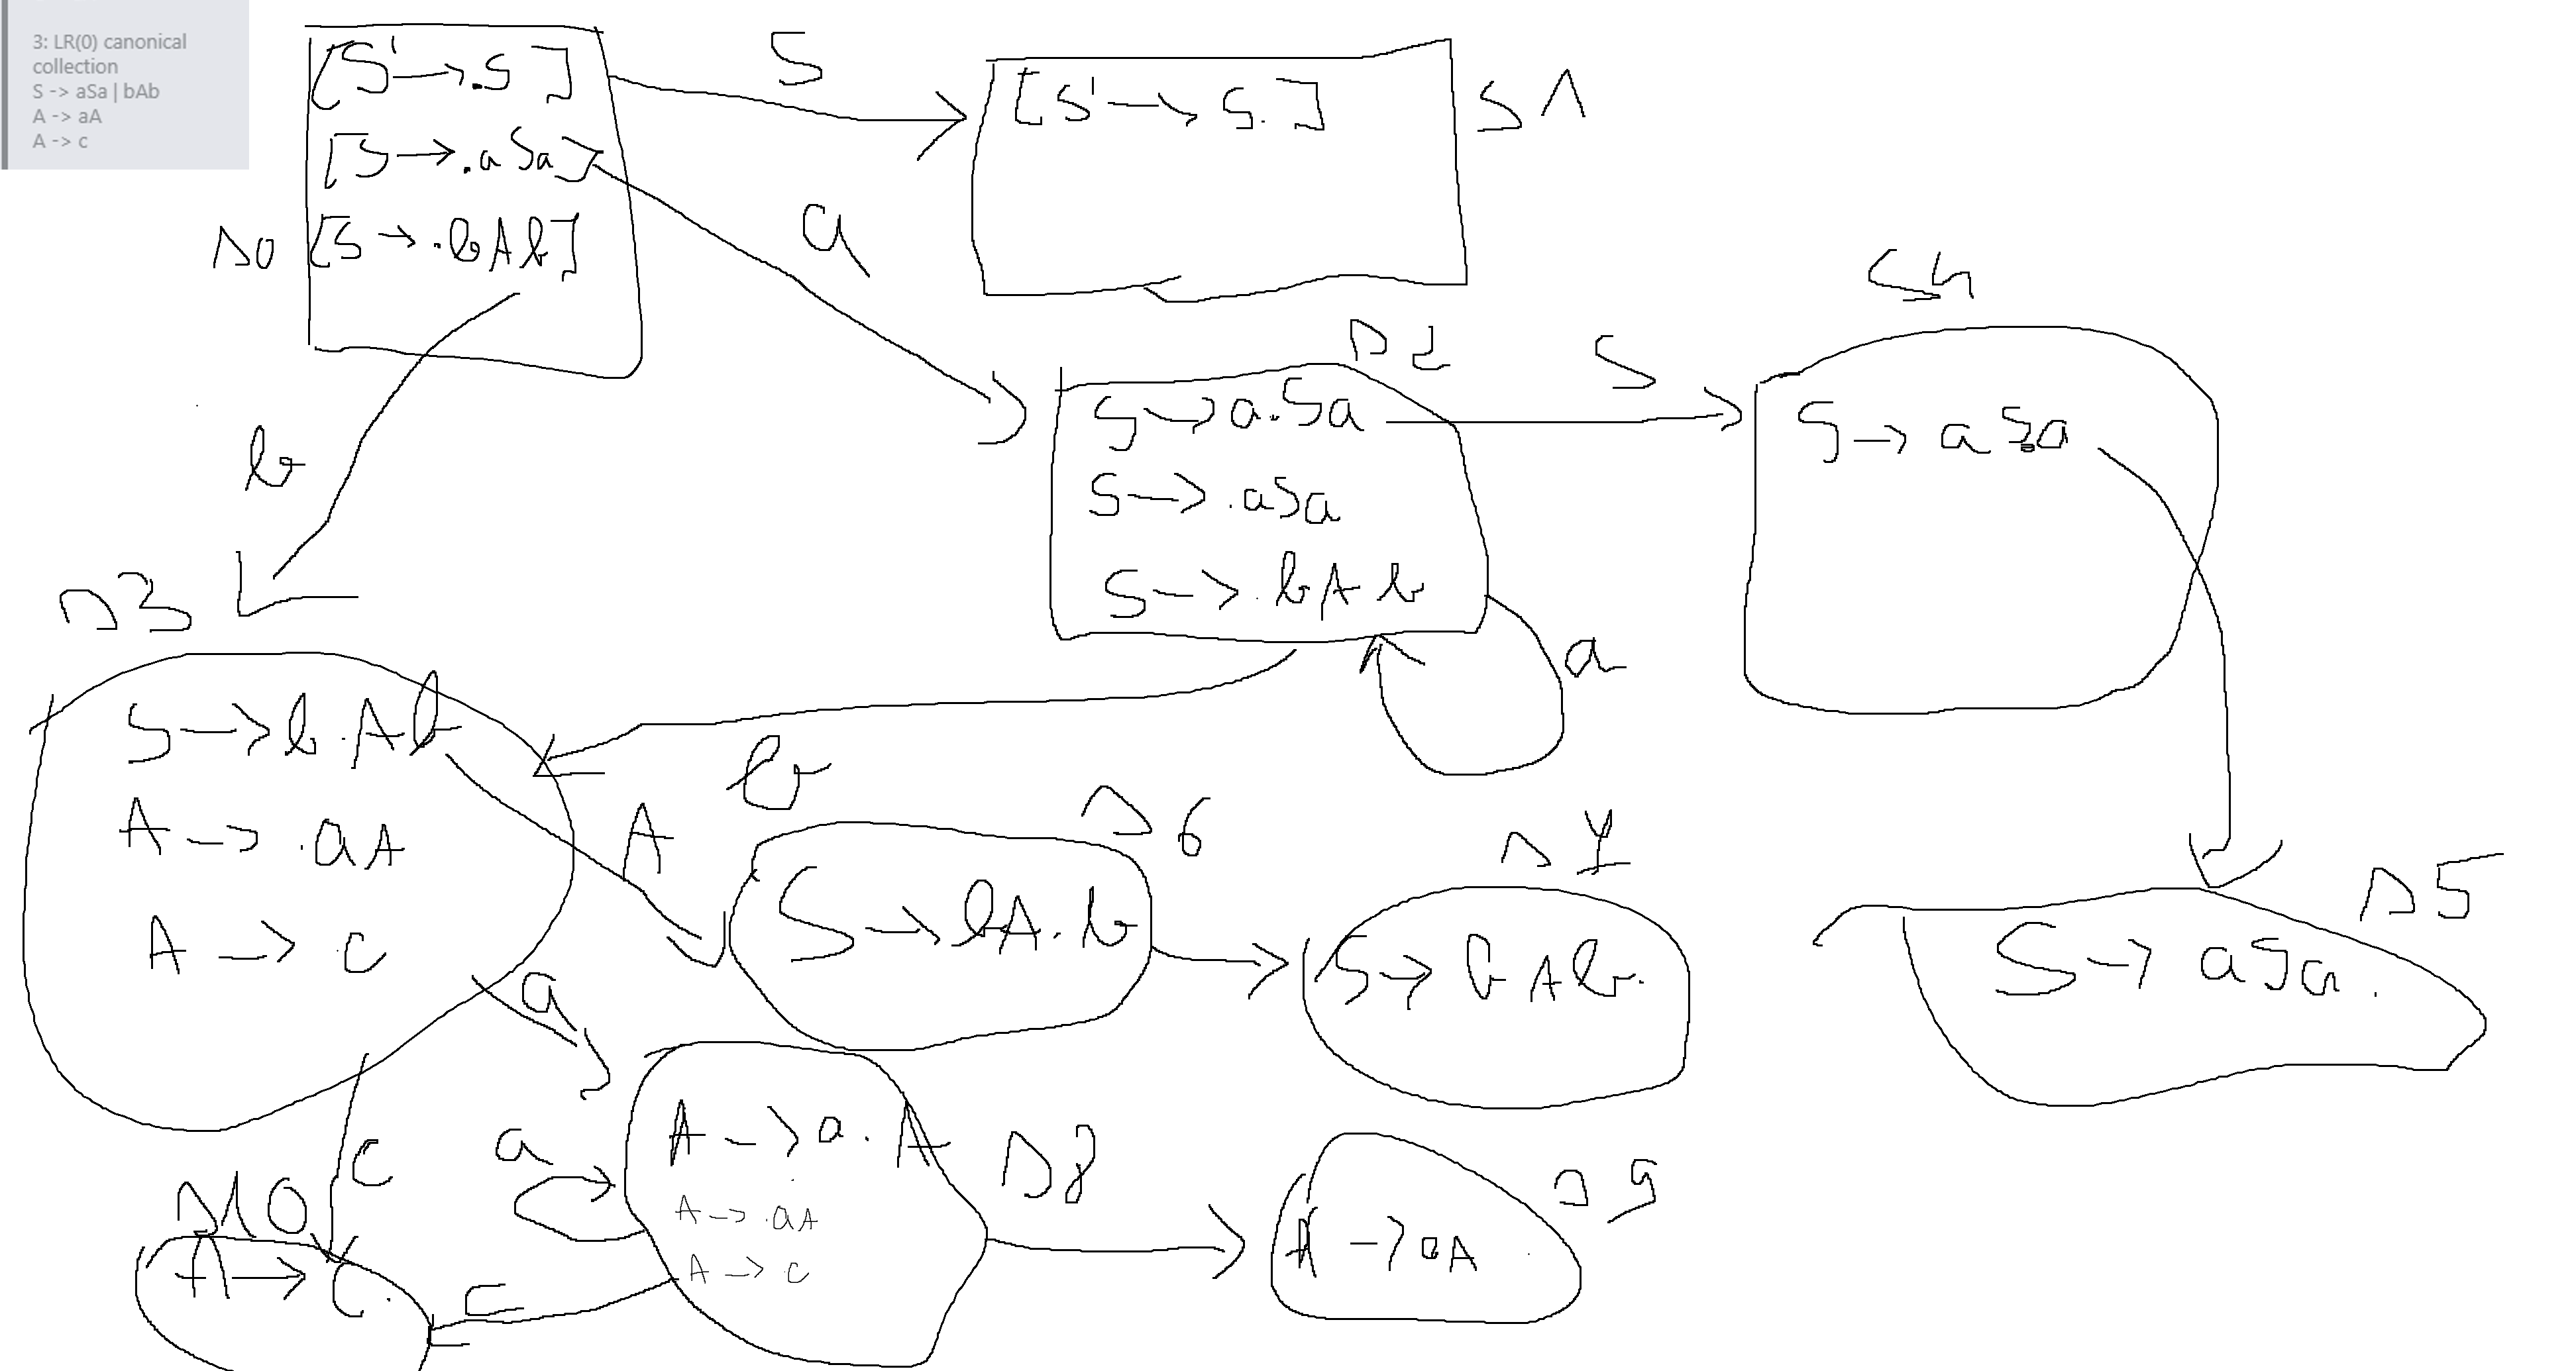 3: LR(0) canonical
collection
S -> aSa | bAb
A -> aA
A -> c
[S' → .S]
[S → .aSa]
[S → .bAb]
s0
S
[S' → S.]
S1
a
b
s2
S → a.Sa
S → .aSa
S → .bAb
S
S4
S → aS.a
a
b
s3
S → b.Ab
A → .aA
A → .c
A
s6
S → bA.b
s7
S → bAb.
s5
S → aSa.
a
c
a
A → a.A
A → .aA
A → c
s8
s9
A → aA.
s10
A → c.
c